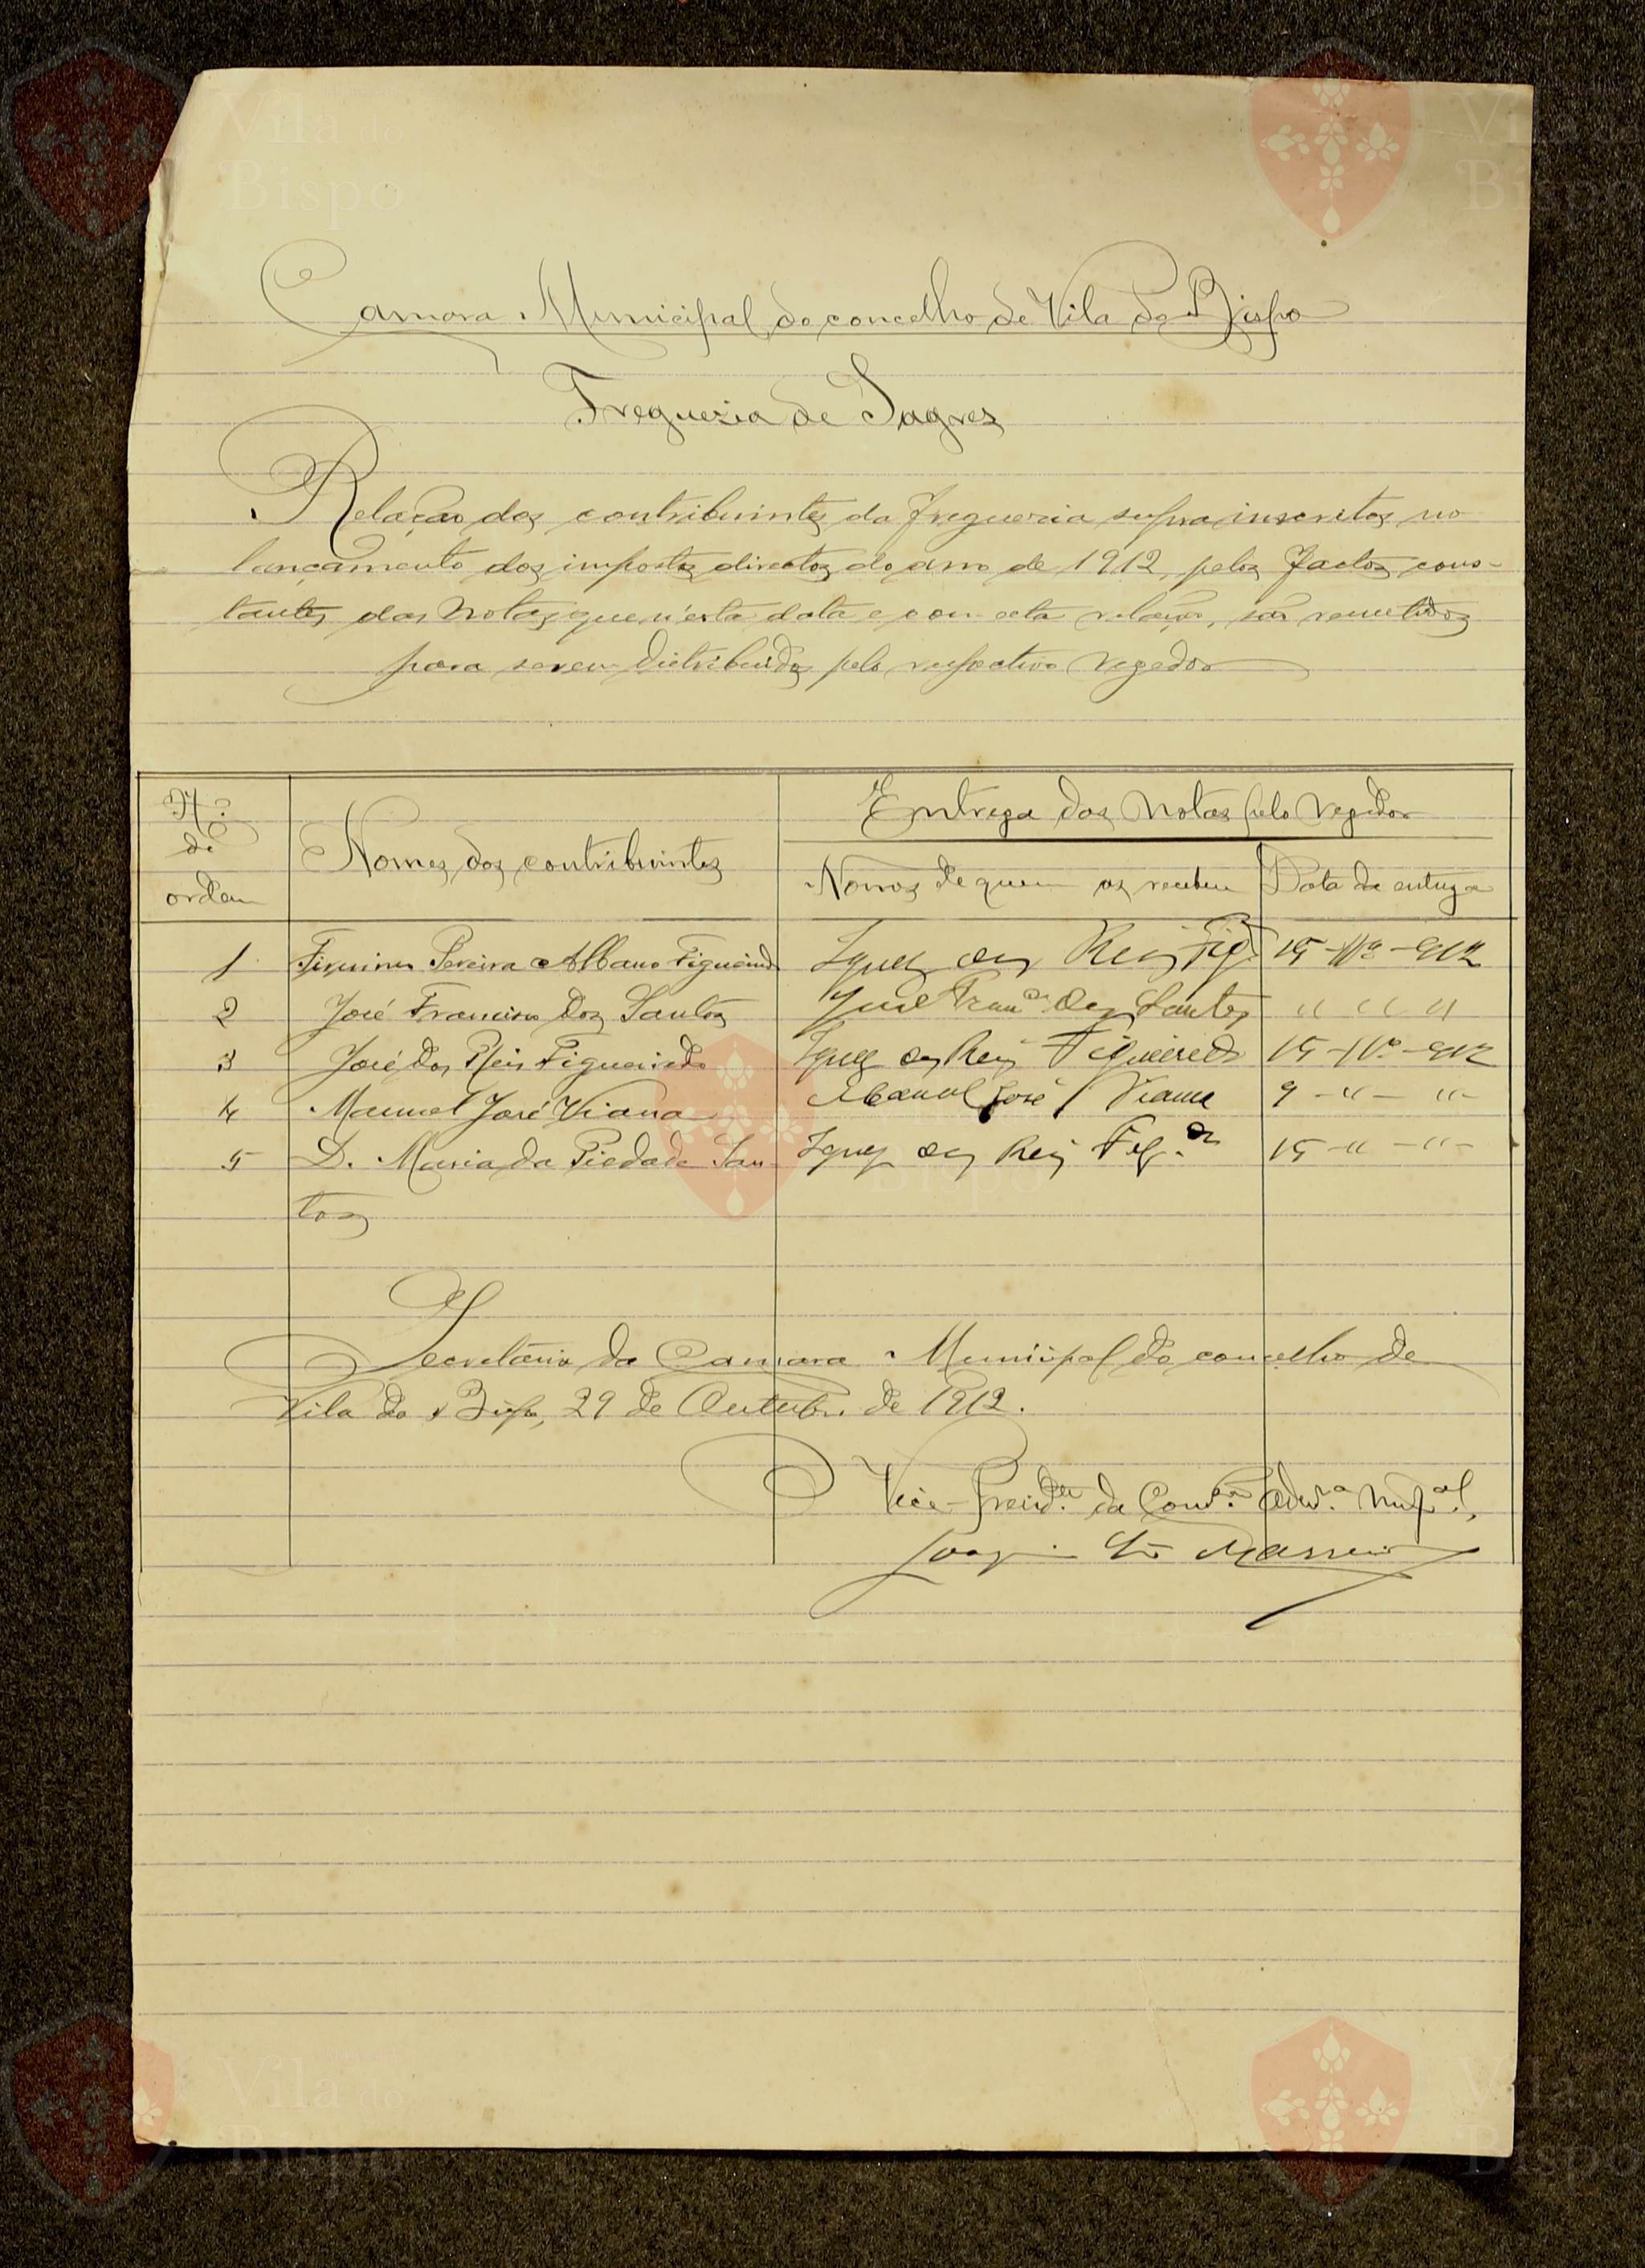 Camara Municipal do concelho de Vila do Bispo
Freguezia de Sagres
Relação dos contribuintes da freguezia supra inscritos no
lançamento dos impostos directos do ano de 1912, pelos factos cons-
tantes das notas que n'esta data e com esta relação, são remetidos
para serem distribuidos pelo respectivo regedor
N.º de ordem
Nomes dos contribuintes
Entrega das notas pelo regedor
Nomes de quem as recebeu
Data da entrega
1 Firmino Pereira Albano Figueiredo dos Reis Fig.do 15-11º-912
2 José Francisco dos Santos José Fran.co dos Santos " " "
3 José dos Reis Figueiredo dos Reis Figueiredo 15-11º-912
4 Manuel José Viana Manuel José Viana 9 - " - "-
5 D. Maria da Piedade San- dos Reis Fig.do 15 - " - "-
tos
Secretária da Camara Municipal do concelho de
Vila do Bispo, 29 de Outubro de 1912.
O Vice-Presid.te da Com.ão Adm.a Mup.al,
Joaquim
Vila do
Bispo
Vila do
Bispo